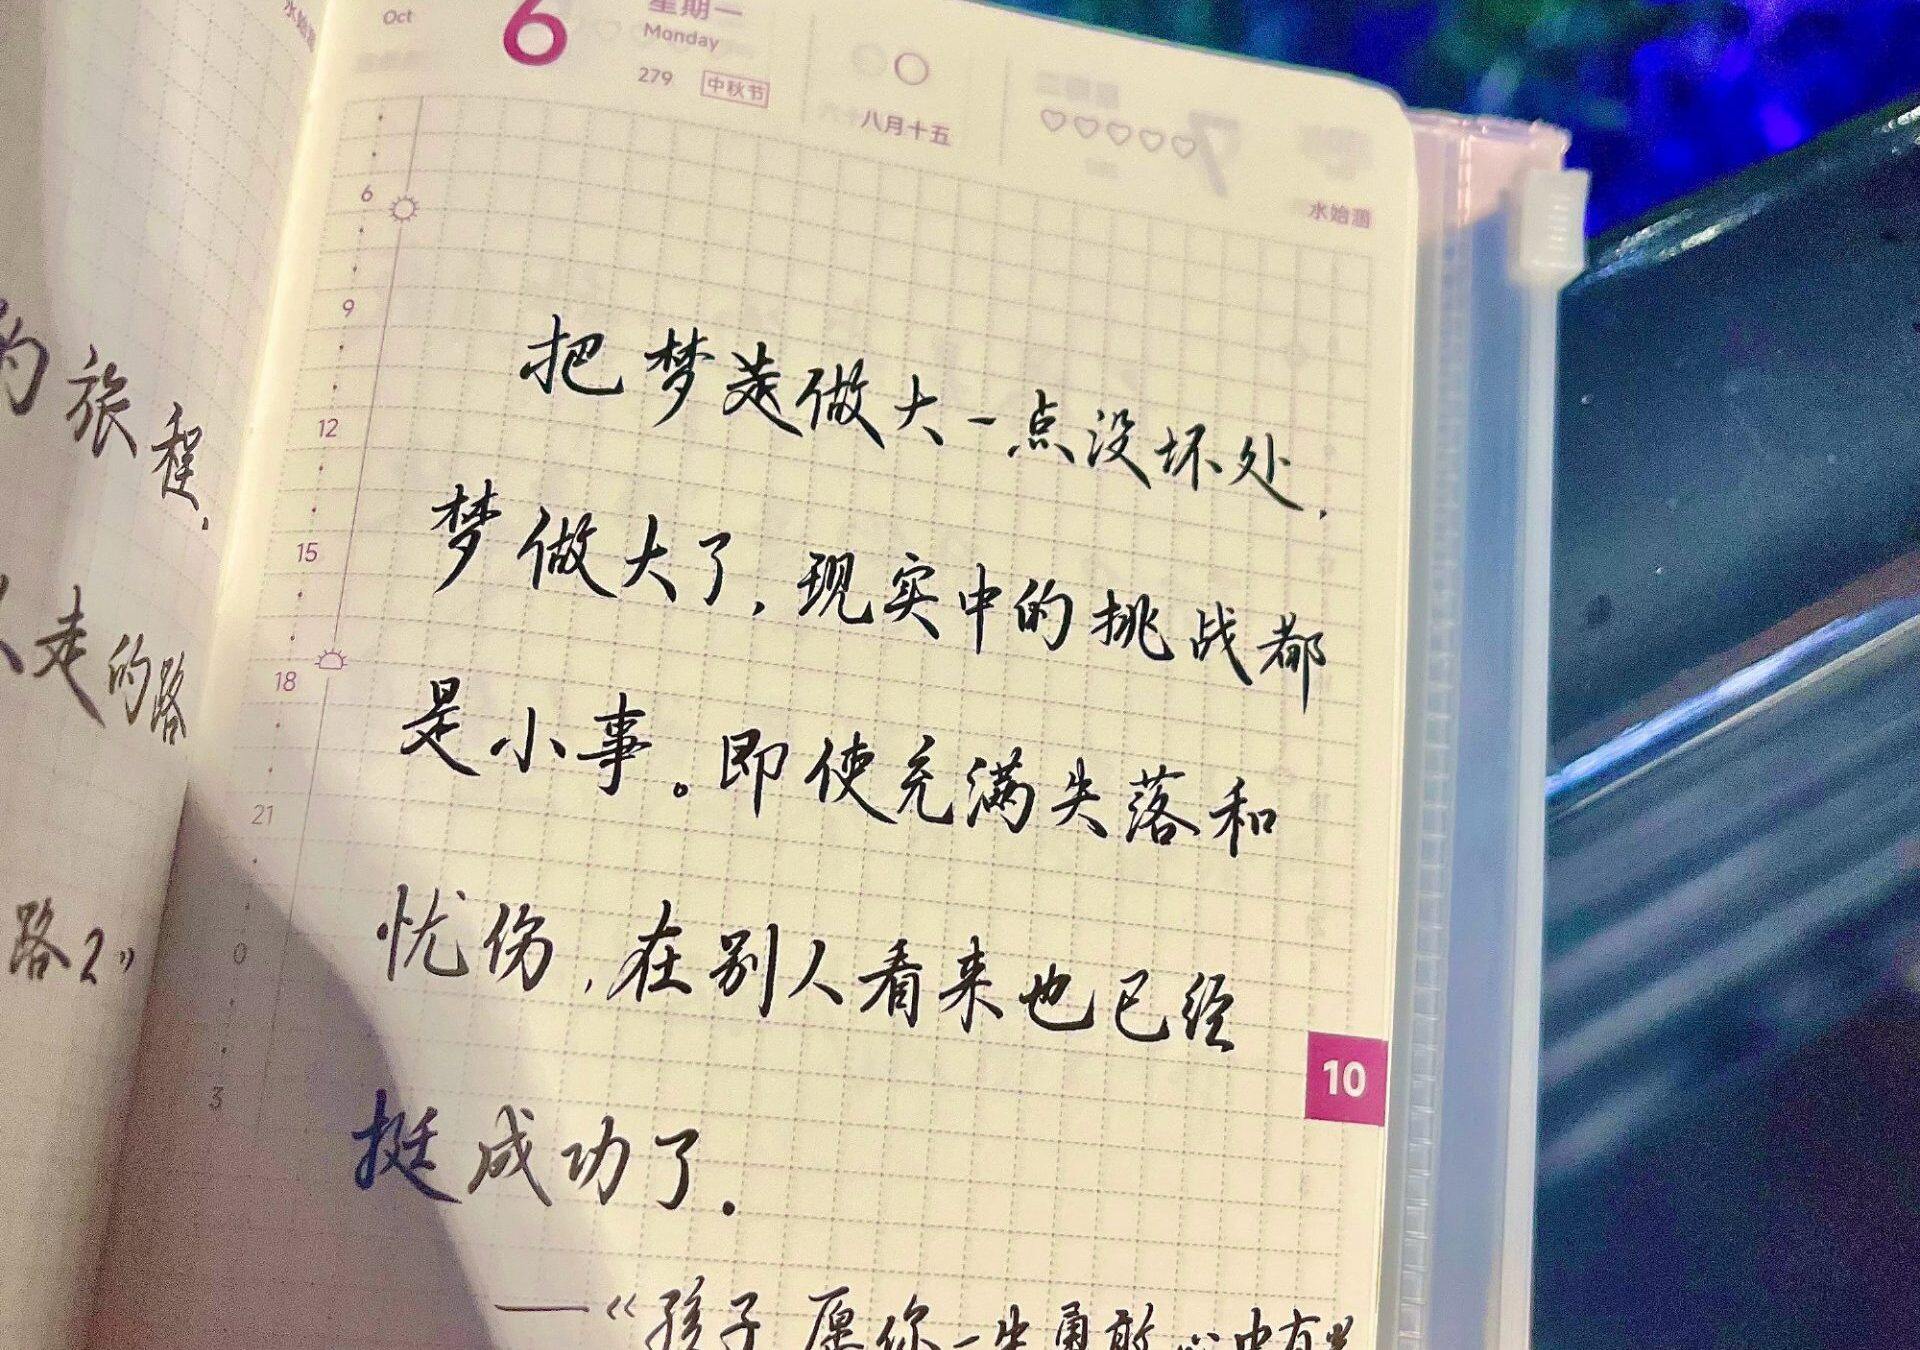 的旅程,
人走的路
路2》
Oct
6
星期一
Monday
279
中秋节
八月十五
水始涸
6
9
12
15
18
21
0
3
把梦做大一点没坏处,
梦做大了,现实中的挑战都
是小事。即使充满失落和
忧伤,在别人看来也已经
挺成功了.
10
——《孩子 愿你一生勇敢 心中有